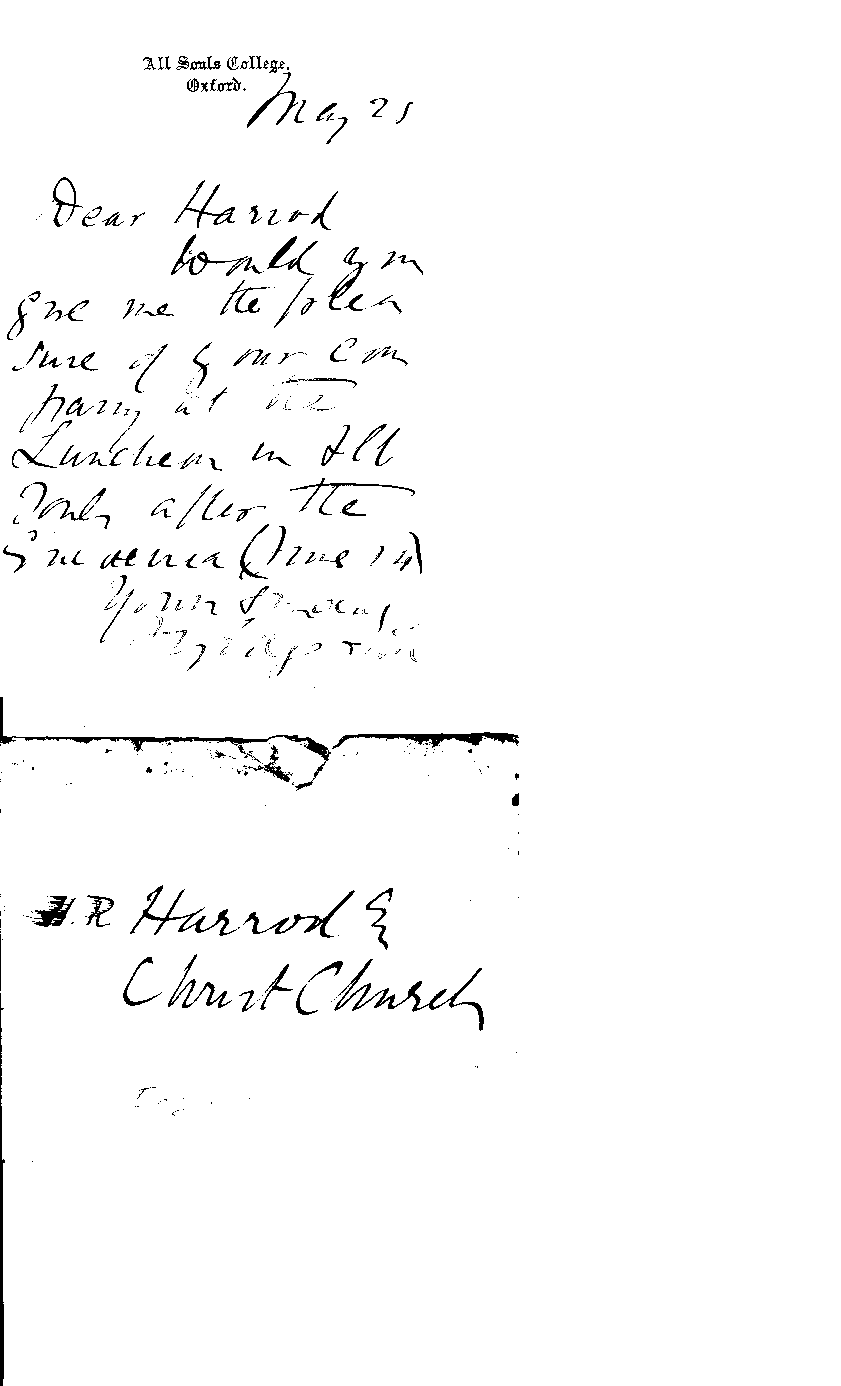 All Souls College,
Oxford.
May 25
Dear Harrod
Would you
give me the plea
sure of your com
pany at the
Luncheon in All
Souls after the
Encaenia (June 24)
Yours sincerely
Harrod Esq
Christ Church